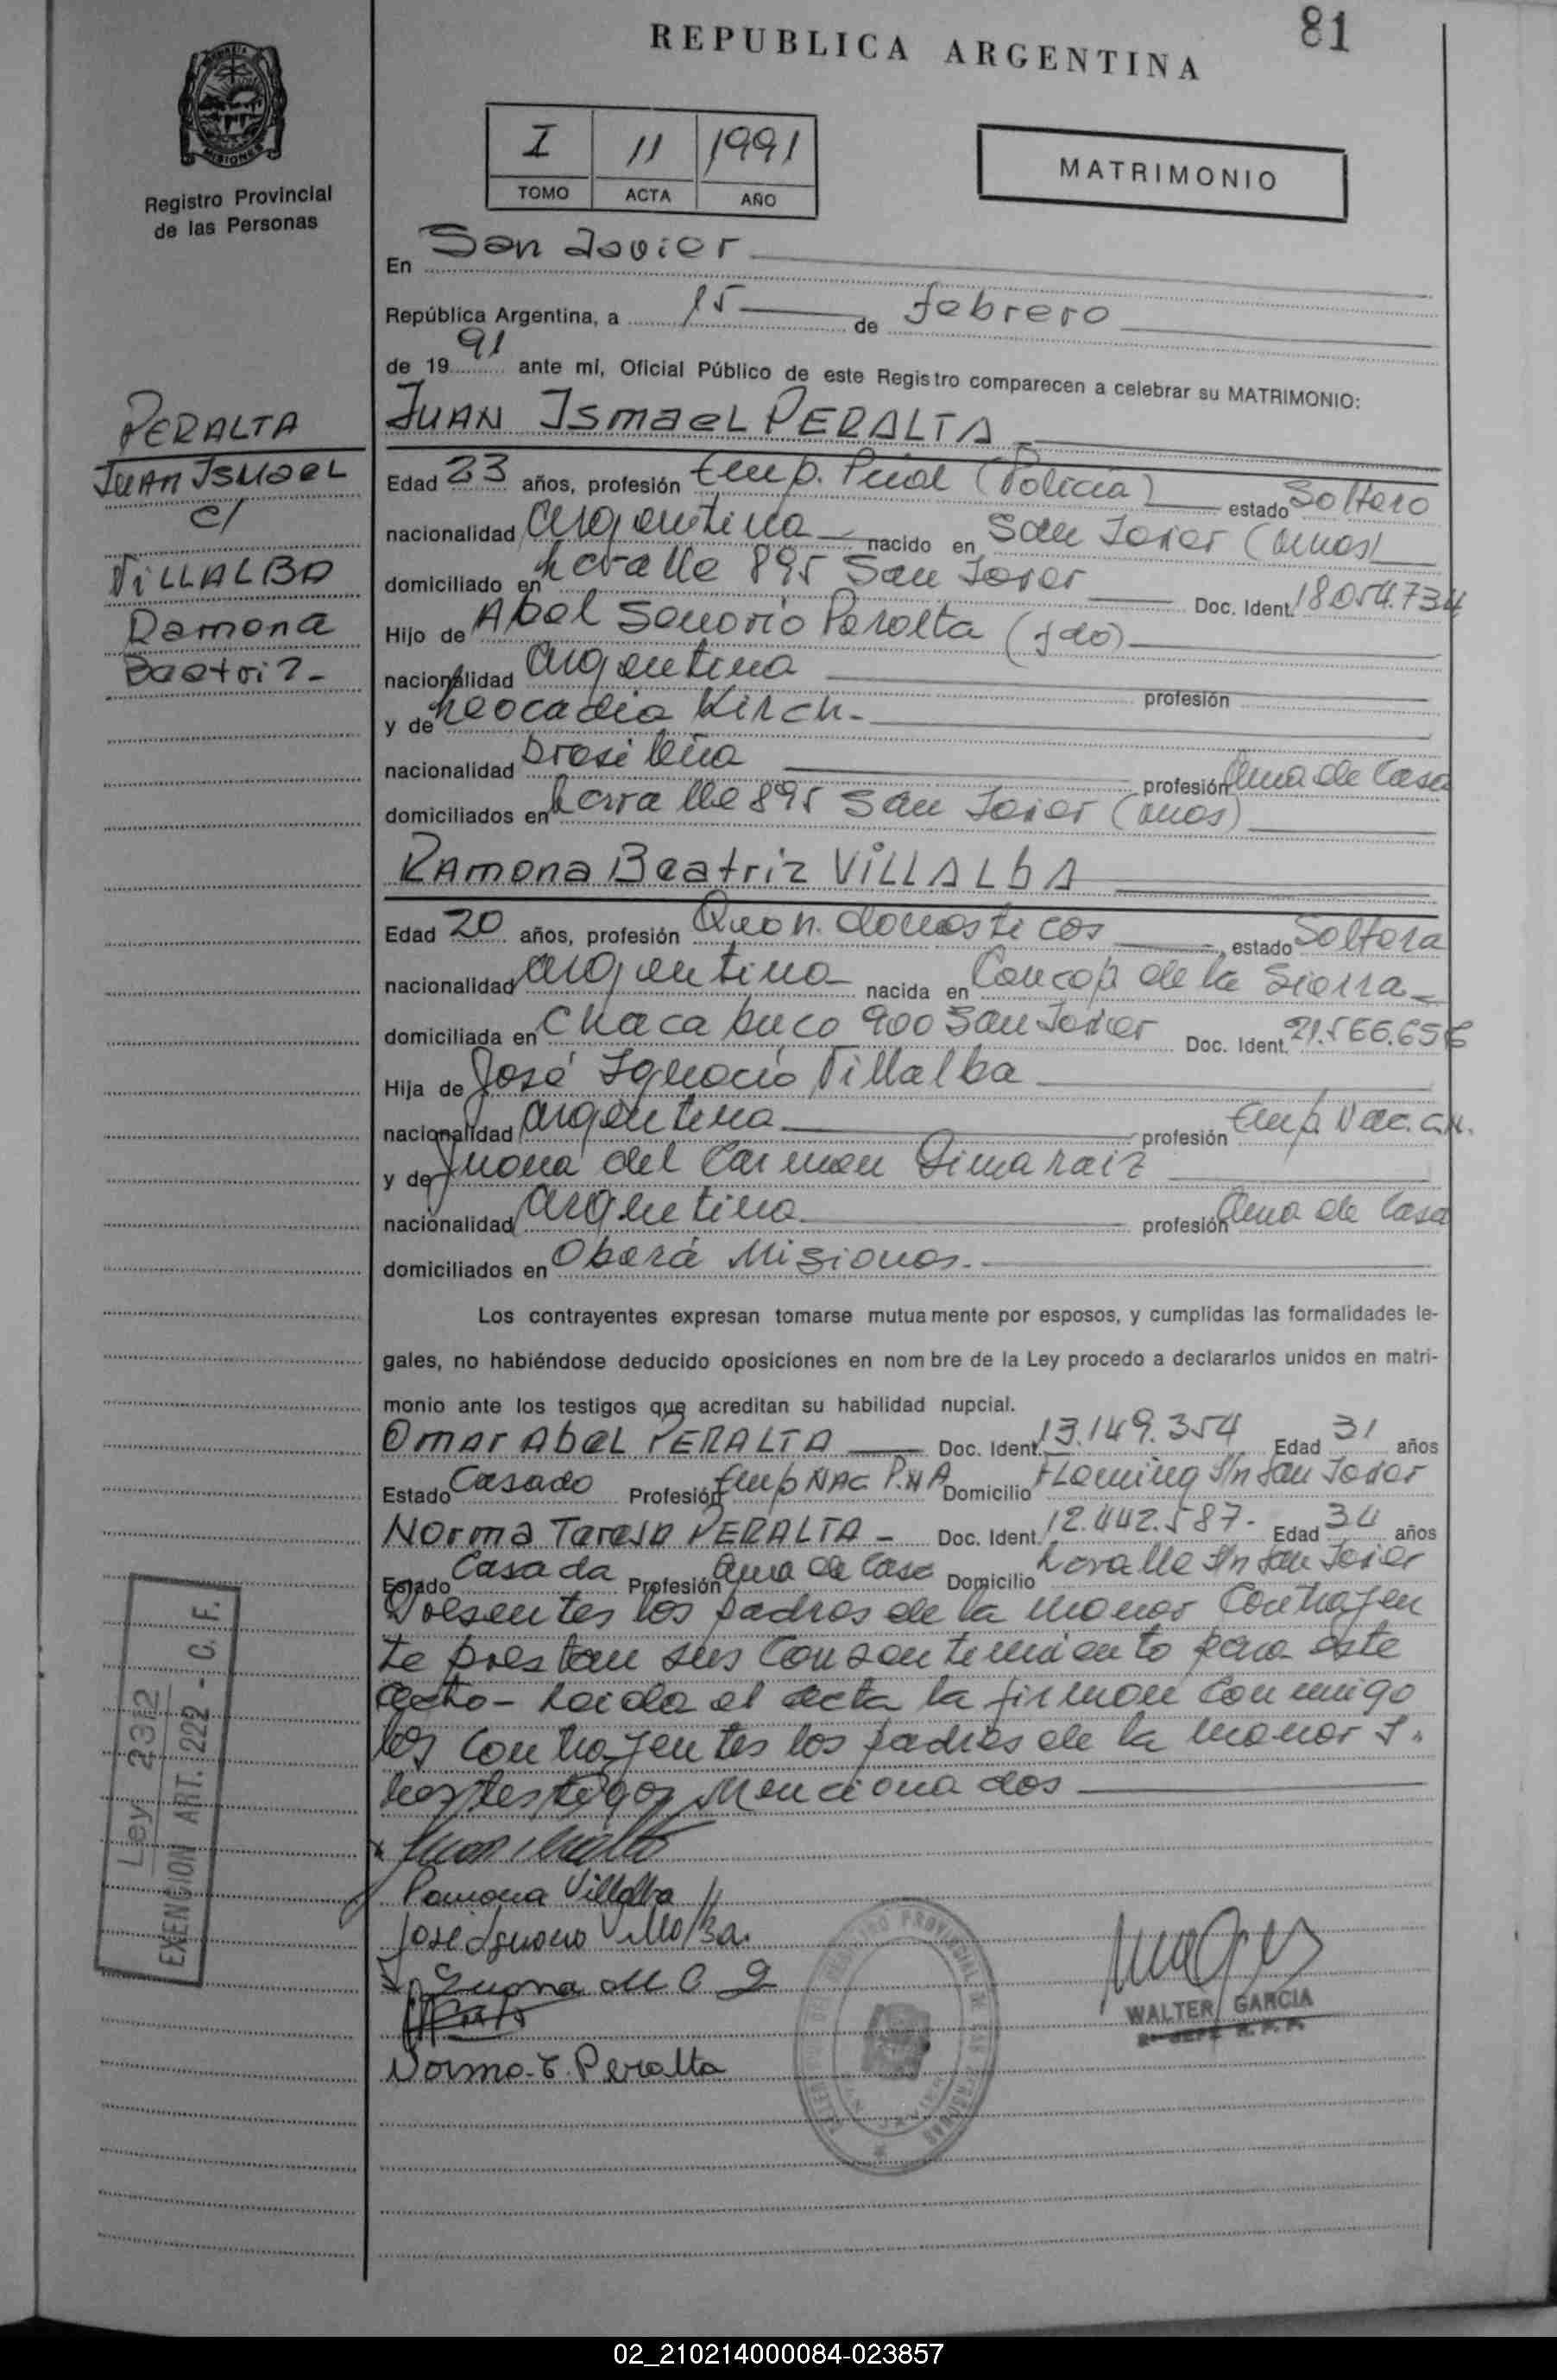 81
REPUBLICA ARGENTINA
MISIONES
Registro Provincial
de las Personas
I 11 1991
TOMO ACTA AÑO
MATRIMONIO
En San Javier
República Argentina, a 15 de febrero
de 1991 ante mí, Oficial Público de este Registro comparecen a celebrar su MATRIMONIO:
PERALTA
Juan Ismael
c/
VILLALBA
Ramona
Beatriz -
Juan Ismael PERALTA
Edad 23 años, profesión Emp. Pcial (Policia) estado Soltero
nacionalidad argentina nacido en San Javier (mnes)
domiciliado en Lavalle 895 San Javier Doc. Ident. 18.054.734
Hijo de Abel Peralta (fdo)
nacionalidad argentina profesión
y de Leocadia Kirch -
nacionalidad brasileña profesión Ama de Casa
domiciliados en Lavalle 895 San Javier (mnes)
Ramona Beatriz VILLALBA
Edad 20 años, profesión Queh. domesticos estado Soltera
nacionalidad argentina nacida en Concep de la Sierra -
domiciliada en Chacabuco 900 San Javier Doc. Ident. 21.566.656
Hija de José Ignacio Villalba
nacionalidad argentina profesión Emp Nac.
y de Juana del Carmen
nacionalidad argentina profesión Ama de Casa
domiciliados en Oberá Misiones -
Los contrayentes expresan tomarse mutuamente por esposos, y cumplidas las formalidades le-
gales, no habiéndose deducido oposiciones en nombre de la Ley procedo a declararlos unidos en matri-
monio ante los testigos que acreditan su habilidad nupcial.
Omar Abel PERALTA Doc. Ident. 13.149.354 Edad 31 años
Estado Casado Profesión Emp NAC P.N.A Domicilio Fleming S/n San Javier
Norma Teresa PERALTA - Doc. Ident. 12.442.587 - Edad 34 años
Estado Casada Profesión Ama de Casa Domicilio Lavalle S/n San Javier
Presentes los padres de la menor Contrayen
te prestan sus Consentimiento para este
acto - Leida el acta la firman conmigo
los contrayentes los padres de la menor y
los testigos mencionados
Ley 2312
EXENCION ART. 222 - C. F.
Ramona Villalba
José Ignacio Villalba
Juana del C
Norma T. Peralta
WALTER GARCIA
02_210214000084-023857